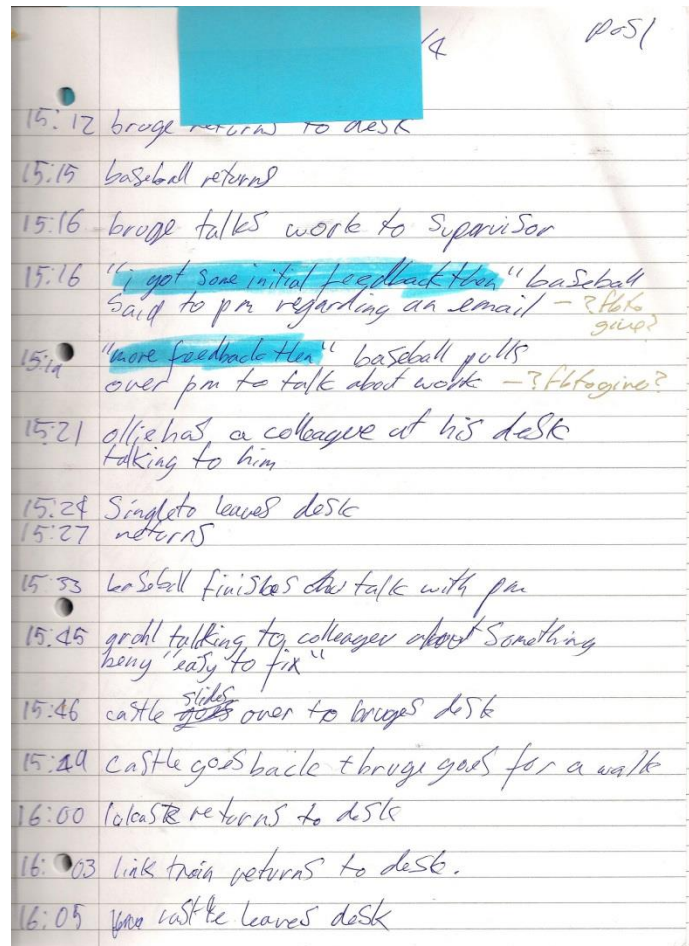 /4
pos1
15:12 bruge returns to desk
15:15 baseball returns
15:16 bruge talks work to supervisor
15:16 "i got some initial feedback then" baseball
said to pm regarding an email - ?fb to
give?
"more feedback then" baseball pulls
over pm to talk about work - ?fb to give?
15:21 ollie has a colleague at his desk
talking to him
15:24 Singleto leaves desk
15:27 returns
15:33 baseball finishes talk with pm
15:45 grohl talking to colleague about something
being "easy to fix"
15:46 castle slides over to bruges desk
15:49 castle goes back + bruge goes for a walk
16:00 returns to desk
16:03 link train returns to desk.
16:05 castle leaves desk